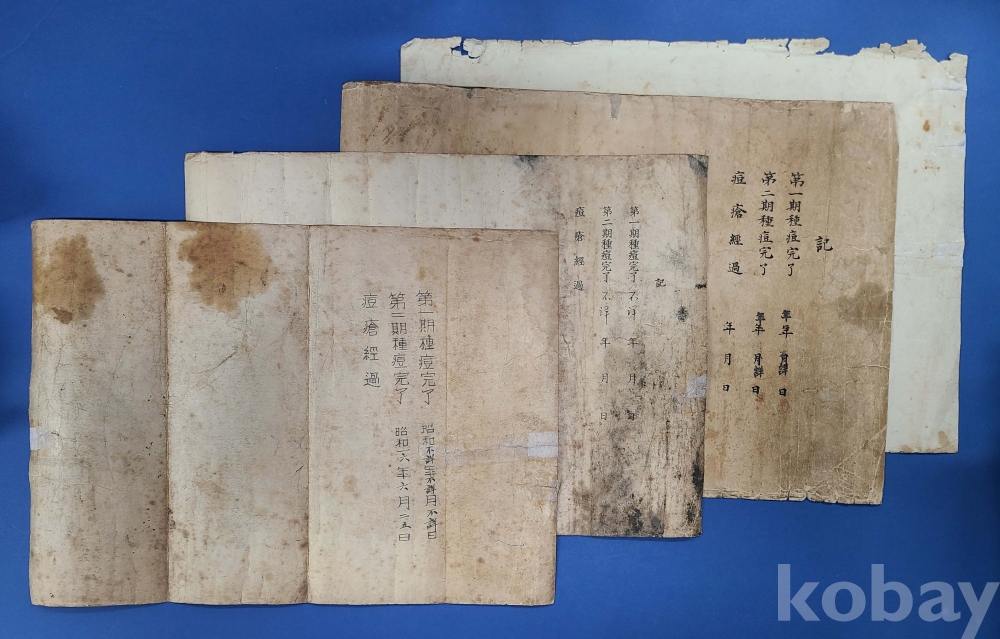 第一期種痘完了 昭和不詳年不詳月不詳日
第二期種痘完了 昭和一六年六月二五日
痘瘡經過
記
第一期種痘完了 不詳 年 月 日
第二期種痘完了 不詳 年 月 日
痘瘡經過
記
第一期種痘完了 年 月 日
第二期種痘完了 年 月 日
痘瘡經過 年 月 日
kobay